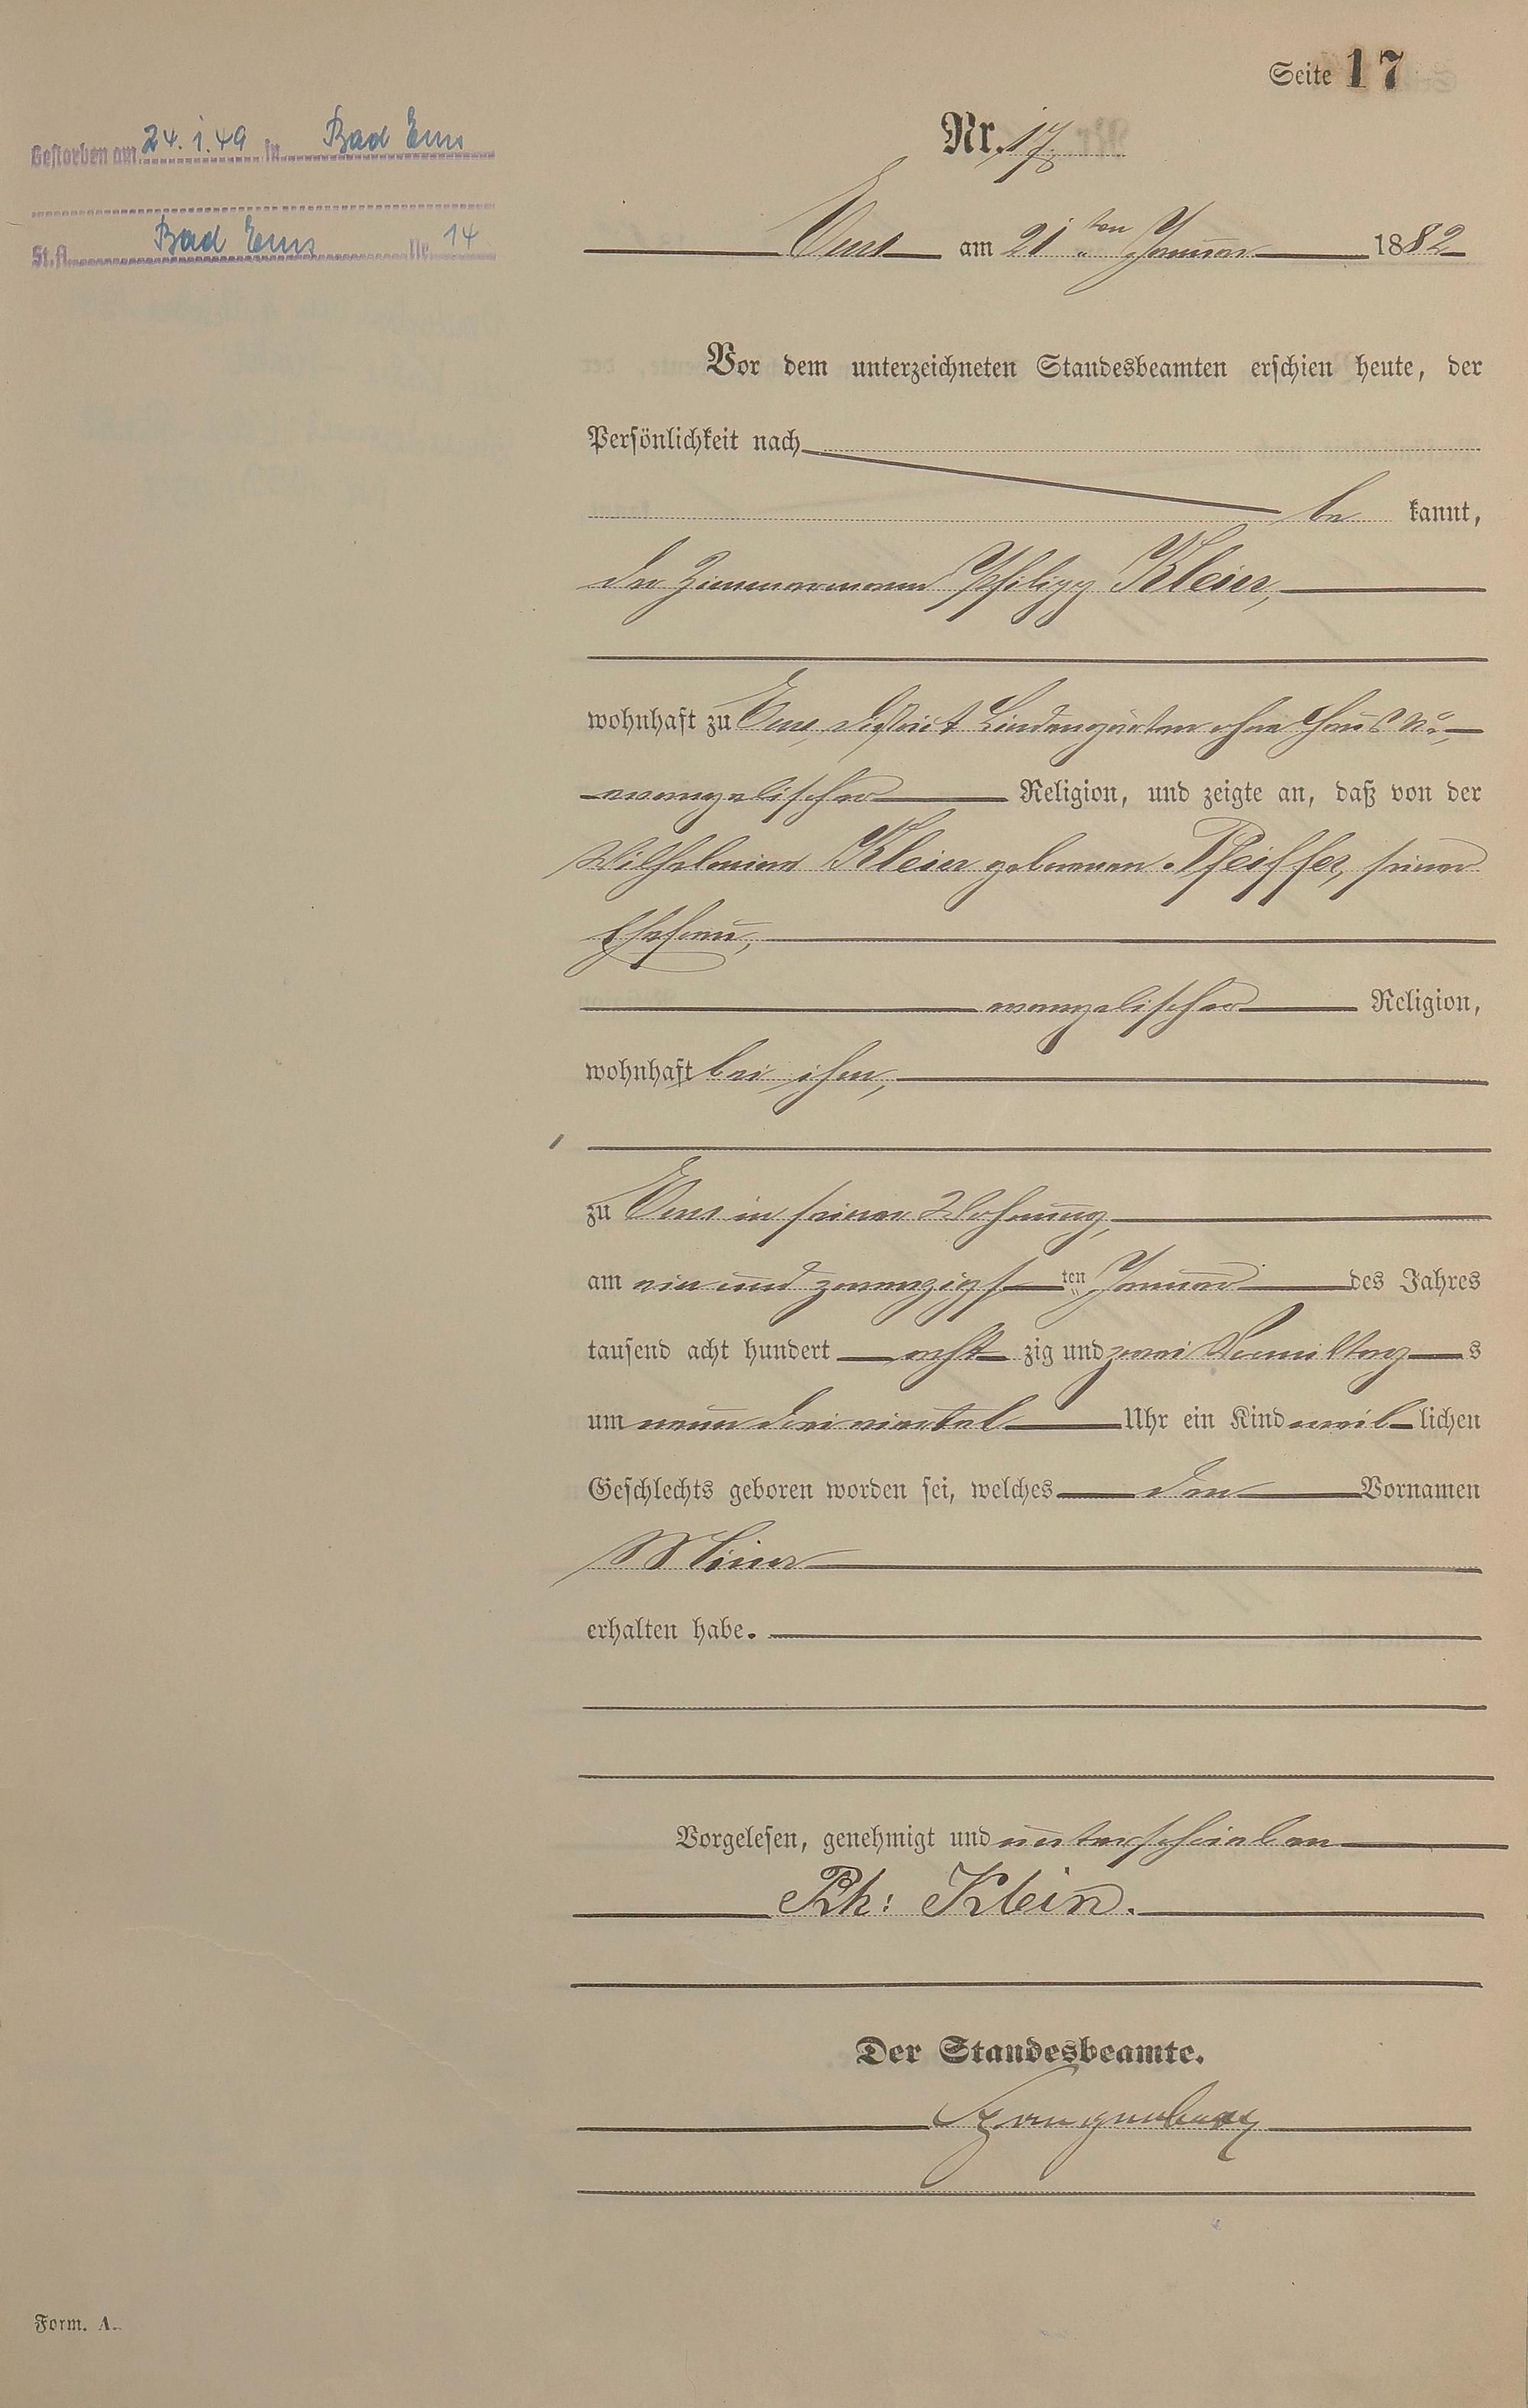 Seite 17
Nr. 17.
Gestorben am 24.1.49 in Bad Ems
St.A. Bad Ems Nr. 14
Ems am 21ten Januar 1882
Vor dem unterzeichneten Standesbeamten erschien heute, der
Persönlichkeit nach
be kannt,
der Zimmermann Philipp Klein,
wohnhaft zu Ems, District Lindengärten ohne Haus No,
evangelischer Religion, und zeigte an, daß von der
Wilhelmine Klein geborenen Pfeiffer, seiner
Ehefrau,
evangelischer Religion,
wohnhaft bei ihm,
zu Ems in seiner Wohnung,
am ein und zwanzigs ten Januar des Jahres
tausend acht hundert acht zig und zwei Vormittag s
um neun drei viertel Uhr ein Kind weib lichen
Geschlechts geboren worden sei, welches den Vornamen
Mina
erhalten habe.
Vorgelesen, genehmigt und unterschrieben
Ph: Klein.
Der Standesbeamte.
Form. A.